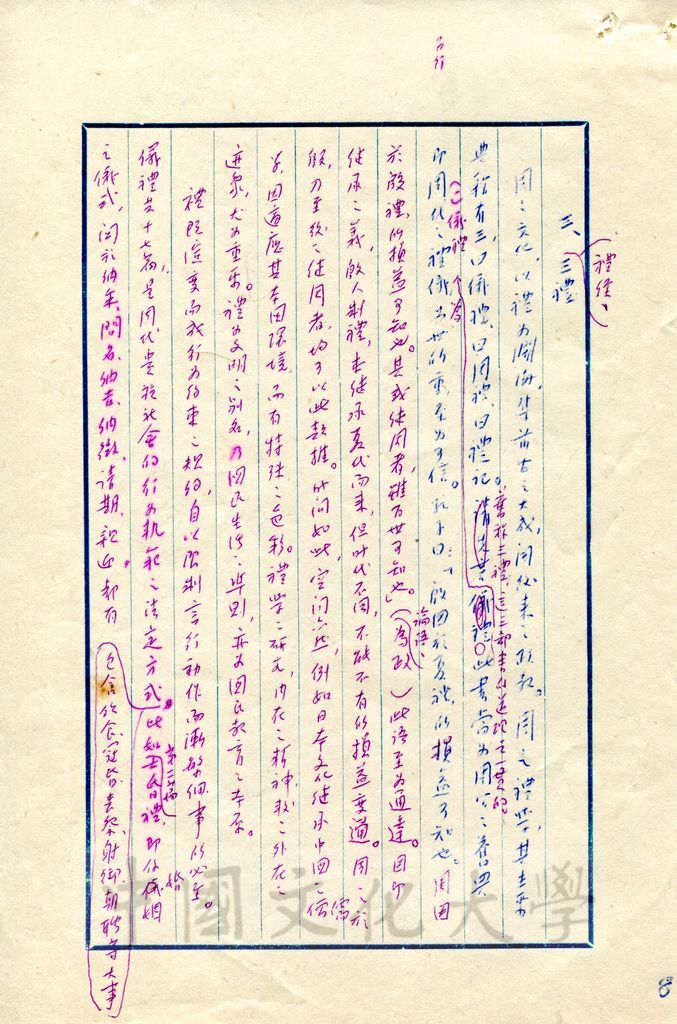 另行
禮經、
三、三禮
周之文化，以禮為淵海，集前古之大成，開後來之政教。周之禮學，其主要
典籍有三，曰儀禮，曰周禮，曰禮記。
舊稱三禮，這三部書
儀禮
此書當為周公之舊典
(二)儀禮
即周代之禮儀，出世的
孔子曰：「殷因於夏禮，所損益可知也。周因
於殷禮，所損益可知也。其或繼周者，雖百世可知也。」（
論語、
為政）此語至為通達。因即
繼承之義，殷人制禮，
繼承夏代而來，但時代不同，不能不有所損益變通。周之於
殷，乃至後之繼周者，均可以此類推。時間如此，空間亦然，例如日本文化繼承中國之
儒
，因適應其本國環境，而有特殊之色彩。禮學之研究，內在之精神較之外在之
跡象，尤為重要。禮為文明之別名，乃國民生活之準則，亦為國民教育之本原。
禮既演變而成行為約束之規約，自以限制言行動作而漸繁細，事所必至。
儀禮共十七篇，是周代貴族社會的行為軌範之法定方式。
包含飲食、冠昏、喪祭、射御、朝聘等大事
此如士昏禮，
第二篇
即依儀
婚
姻
之儀式，關於納采、問名、納吉、納徵、請期、親迎，都有
8
中國文化大學